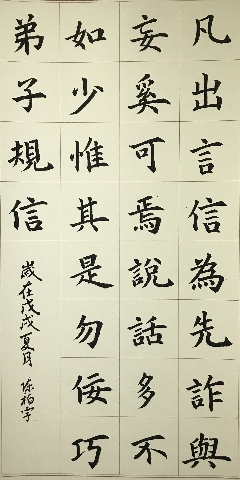 凡出言信為先詐與
妄奚可焉說話多不
如少惟其是勿佞巧
弟子規信
歲在戊戌夏月